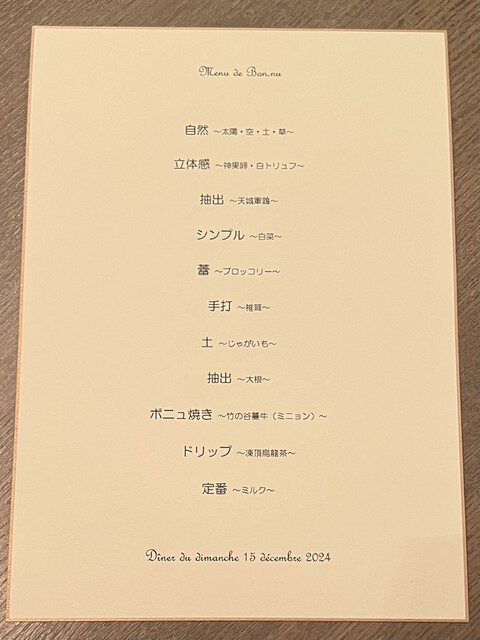 Menu de Bon.nu
自然 ～太陽・空・土・草～
立体感 ～神果卵・白トリュフ～
抽出 ～天城軍鶏～
シンプル ～白菜～
蕾 ～ブロッコリー～
手打 ～椎茸～
土 ～じゃがいも～
抽出 ～大根～
ボニュ焼き ～竹の谷蔓牛（ミニョン）～
ドリップ ～凍頂烏龍茶～
定番 ～ミルク～
Dîner du dimanche 15 décembre 2024